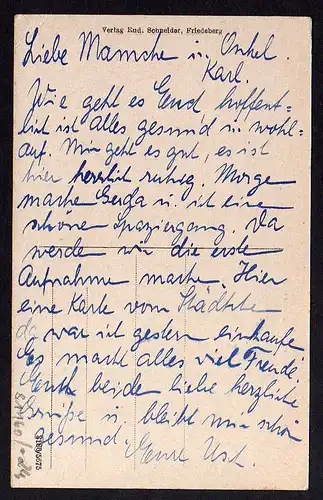 Verlag Rud. Schneider, Friedeberg
Liebe Mamsche u. Onkel
Karl.
Wie geht es Euch, hoffent=
lich ist alles gesund u. wohl-
auf. Mir geht es gut, es ist
hier herrlich ruhig. Morge
mache Gerda u. ich eine
schöne Spaziergang. Da
werde wir die erste
Aufnahme mache. Hier
eine Karte vom Städtche
da war ich gestern einkaufe
Es macht alles viel Freude
Euch beide liebe herzliche
Grüße u. bleibt nur schön
gesund. Eure